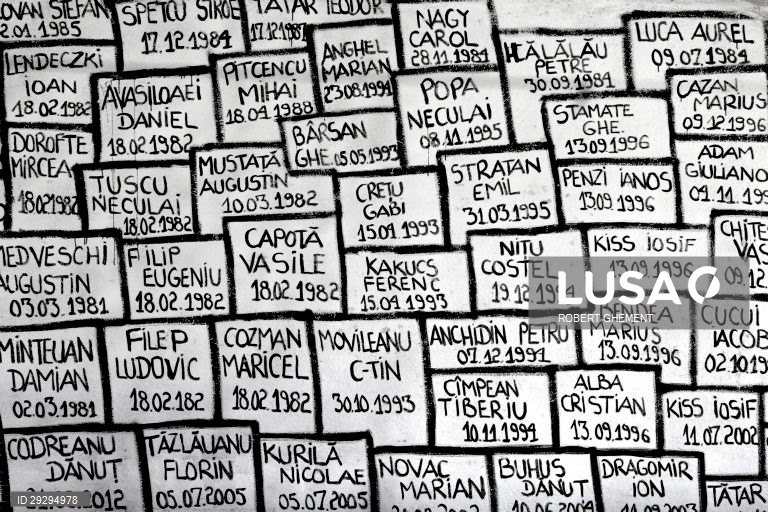 SPETCU
17.12.1984
TATAR TEODOR
17.12.198
NAGY
CAROL
28.11.1984
HĂLĂLĂU
PETRE
30.09.1981
LUCA AUREL
09.07.1984
LENDECZKI
IOAN
18.02.1982
AVASILOAEI
DANIEL
18.02.1982
PITCENCU
MIHAI
18.04.1988
ANGHEL
MARIAN
23.08.1994
POPA
NECULAI
08.11.1995
STAMATE
GHE.
13.09.1996
CAZAN
MARIUS
09.12.1996
DOROFTE
MIRCEA
18.02.1982
TUSCU
NECULAI
18.02.1982
MUSTATĂ
AUGUSTIN
10.03.1982
BÂRSAN
GHE. 05.05.1993
CREȚU
GABI
15.01.1993
STRATAN
EMIL
31.03.1995
PENZI IANOS
13.09.1996
ADAM
GIULIANO
MEDVESCHI
AUGUSTIN
03.03.1981
FILIP
EUGENIU
18.02.1982
CAPOTĂ
VASILE
18.02.1982
KAKUCS
FERENC
15.01.1993
NIȚU
COSTEL
KISS IOSIF
13.09.1996
LUSA
ROBERT GHEMENT
MARIUS
13.09.1996
CUCUI
IACOB
02.10.19
DAMIAN
02.03.1981
FILEP
LUDOVIC
18.02.182
COZMAN
MARICEL
18.02.1982
MOVILEANU
C-TIN
30.10.1993
ANCHIDIN PETRU
07.12.1991
CÎMPEAN
TIBERIU
10.11.1994
ALBA
CRISTIAN
13.09.1996
KISS IOSIF
11.07.2002
CODREANU
DĂNUȚ
2012
TĂZLĂUANU
FLORIN
05.07.2005
KURILĂ
NICOLAE
05.07.2005
NOVAC
MARIAN
BUHUS
DĂNUT
DRAGOMIR
ION
TĂTAR
ID 29294978